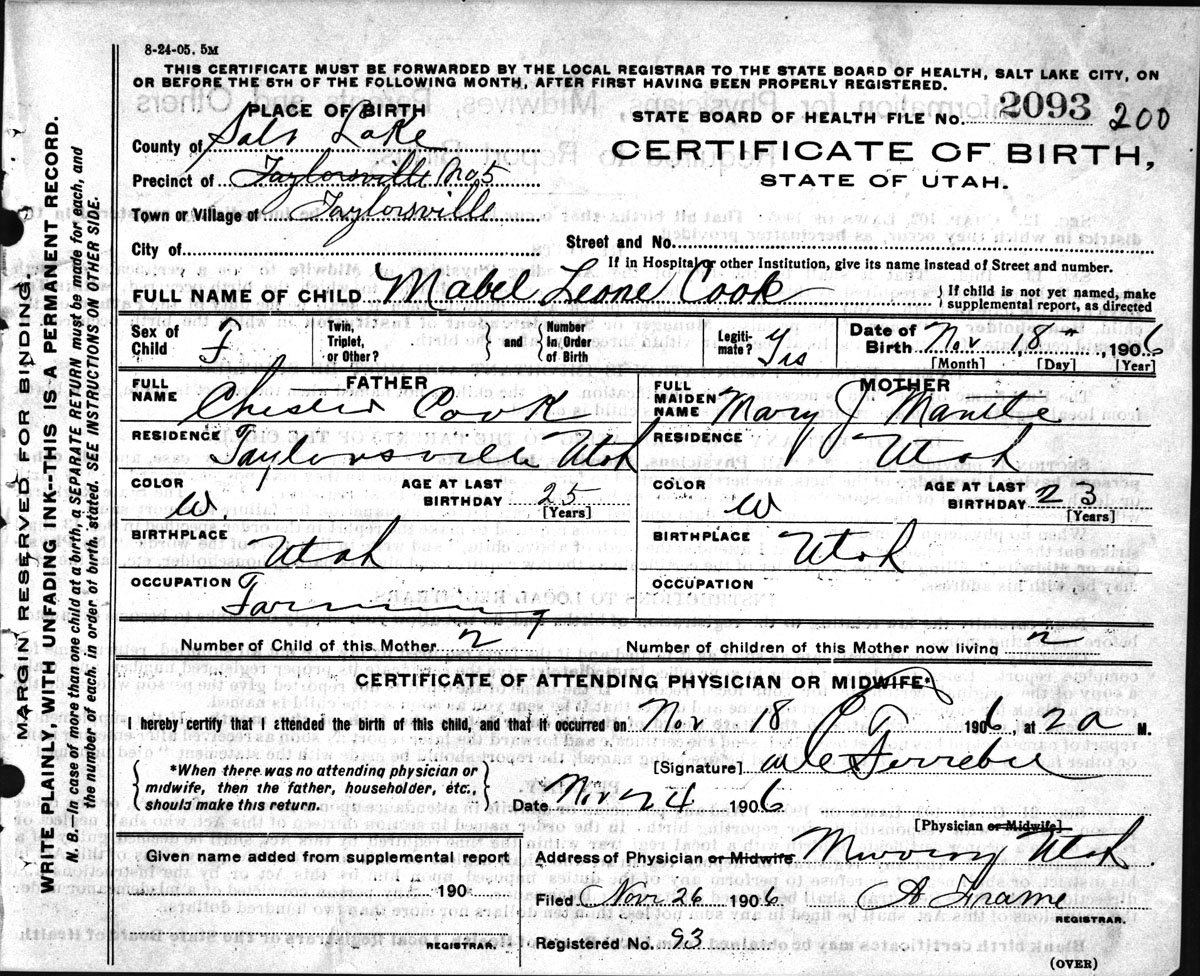 8-24-05. 5M
THIS CERTIFICATE MUST BE FORWARDED BY THE LOCAL REGISTRAR TO THE STATE BOARD OF HEALTH, SALT LAKE CITY, ON
OR BEFORE THE 5TH OF THE FOLLOWING MONTH, AFTER FIRST HAVING BEEN PROPERLY REGISTERED.
PLACE OF BIRTH
STATE BOARD OF HEALTH FILE No. 2093 200
County of Salt Lake
CERTIFICATE OF BIRTH,
Precinct of Taylorsville No 5
STATE OF UTAH.
Town or Village of Taylorsville
City of
Street and No.
If in Hospital or other Institution, give its name instead of Street and number.
FULL NAME OF CHILD Mabel Leone Cook { If child is not yet named, make supplemental report, as directed
Sex of Child F Twin, Triplet, or Other? } and { Number In Order of Birth Legitimate? Yes Date of Birth Nov, 8, 1906
[Month] [Day] [Year]
FATHER
FULL NAME Chester Cook
RESIDENCE Taylorsville Utah
COLOR W. AGE AT LAST BIRTHDAY 25
[Years]
BIRTHPLACE Utah
OCCUPATION Farming
MOTHER
FULL MAIDEN NAME Mary J Mantle
RESIDENCE Utah
COLOR W AGE AT LAST BIRTHDAY 23
[Years]
BIRTHPLACE Utah
OCCUPATION
Number of Child of this Mother 2 Number of children of this Mother now living 2
CERTIFICATE OF ATTENDING PHYSICIAN OR MIDWIFE*
I hereby certify that I attended the birth of this child, and that it occurred on Nov 18 1906, at 2a M.
{ *When there was no attending physician or
midwife, then the father, householder, etc.,
should make this return. }
[Signature]
Date Nov 24 1906
[Physician or Midwife]
Given name added from supplemental report
190
REGISTRAR.
Address of Physician or Midwife Murray Utah
Filed Nov. 26 1906 A Frame
REGISTRAR.
Registered No. 93
(OVER)
MARGIN RESERVED FOR BINDING
WRITE PLAINLY, WITH UNFADING INK--THIS IS A PERMANENT RECORD.
N. B.—In case of more than one child at a birth, a SEPARATE RETURN must be made for each, and
the number of each, in order of birth, stated. SEE INSTRUCTIONS ON OTHER SIDE.